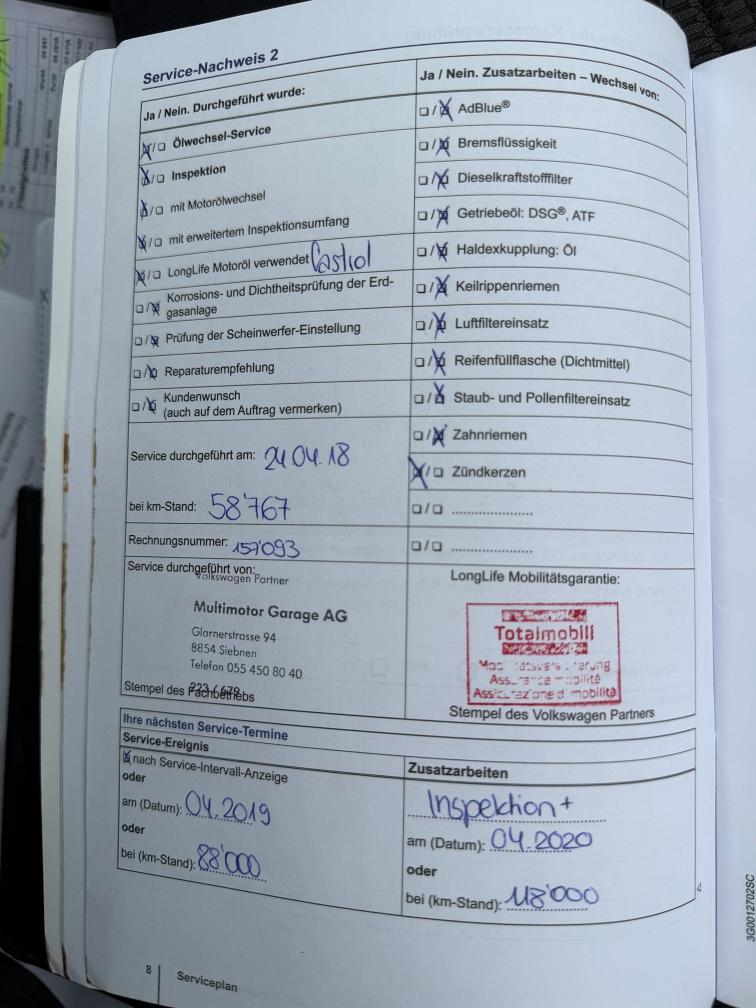 Service-Nachweis 2
Ja / Nein. Durchgeführt wurde:
Ölwechsel-Service
Inspektion
mit Motorölwechsel
mit erweitertem Inspektionsumfang
LongLife Motoröl verwendet Castrol
Korrosions- und Dichtheitsprüfung der Erd-
gasanlage
Prüfung der Scheinwerfer-Einstellung
Reparaturempfehlung
Kundenwunsch
(auch auf dem Auftrag vermerken)
Service durchgeführt am: 24.04.18
bei km-Stand: 58'767
Rechnungsnummer: 157'093
Service durchgeführt von:
Volkswagen Partner
Multimotor Garage AG
Glarnerstrasse 94
8854 Siebnen
Telefon 055 450 80 40
Stempel des Fachbetriebs
Ja / Nein. Zusatzarbeiten – Wechsel von:
AdBlue®
Bremsflüssigkeit
Dieselkraftstofffilter
Getriebeöl: DSG®, ATF
Haldexkupplung: Öl
Keilrippenriemen
Luftfiltereinsatz
Reifenfüllflasche (Dichtmittel)
Staub- und Pollenfiltereinsatz
Zahnriemen
Zündkerzen
LongLife Mobilitätsgarantie:
Totalmobil!
Stempel des Volkswagen Partners
Ihre nächsten Service-Termine
Service-Ereignis
nach Service-Intervall-Anzeige
oder
am (Datum): 04.2019
oder
bei (km-Stand): 88'000
Zusatzarbeiten
Inspektion +
am (Datum): 04.2020
oder
bei (km-Stand): 118'000
8 Serviceplan
3G0012702SC